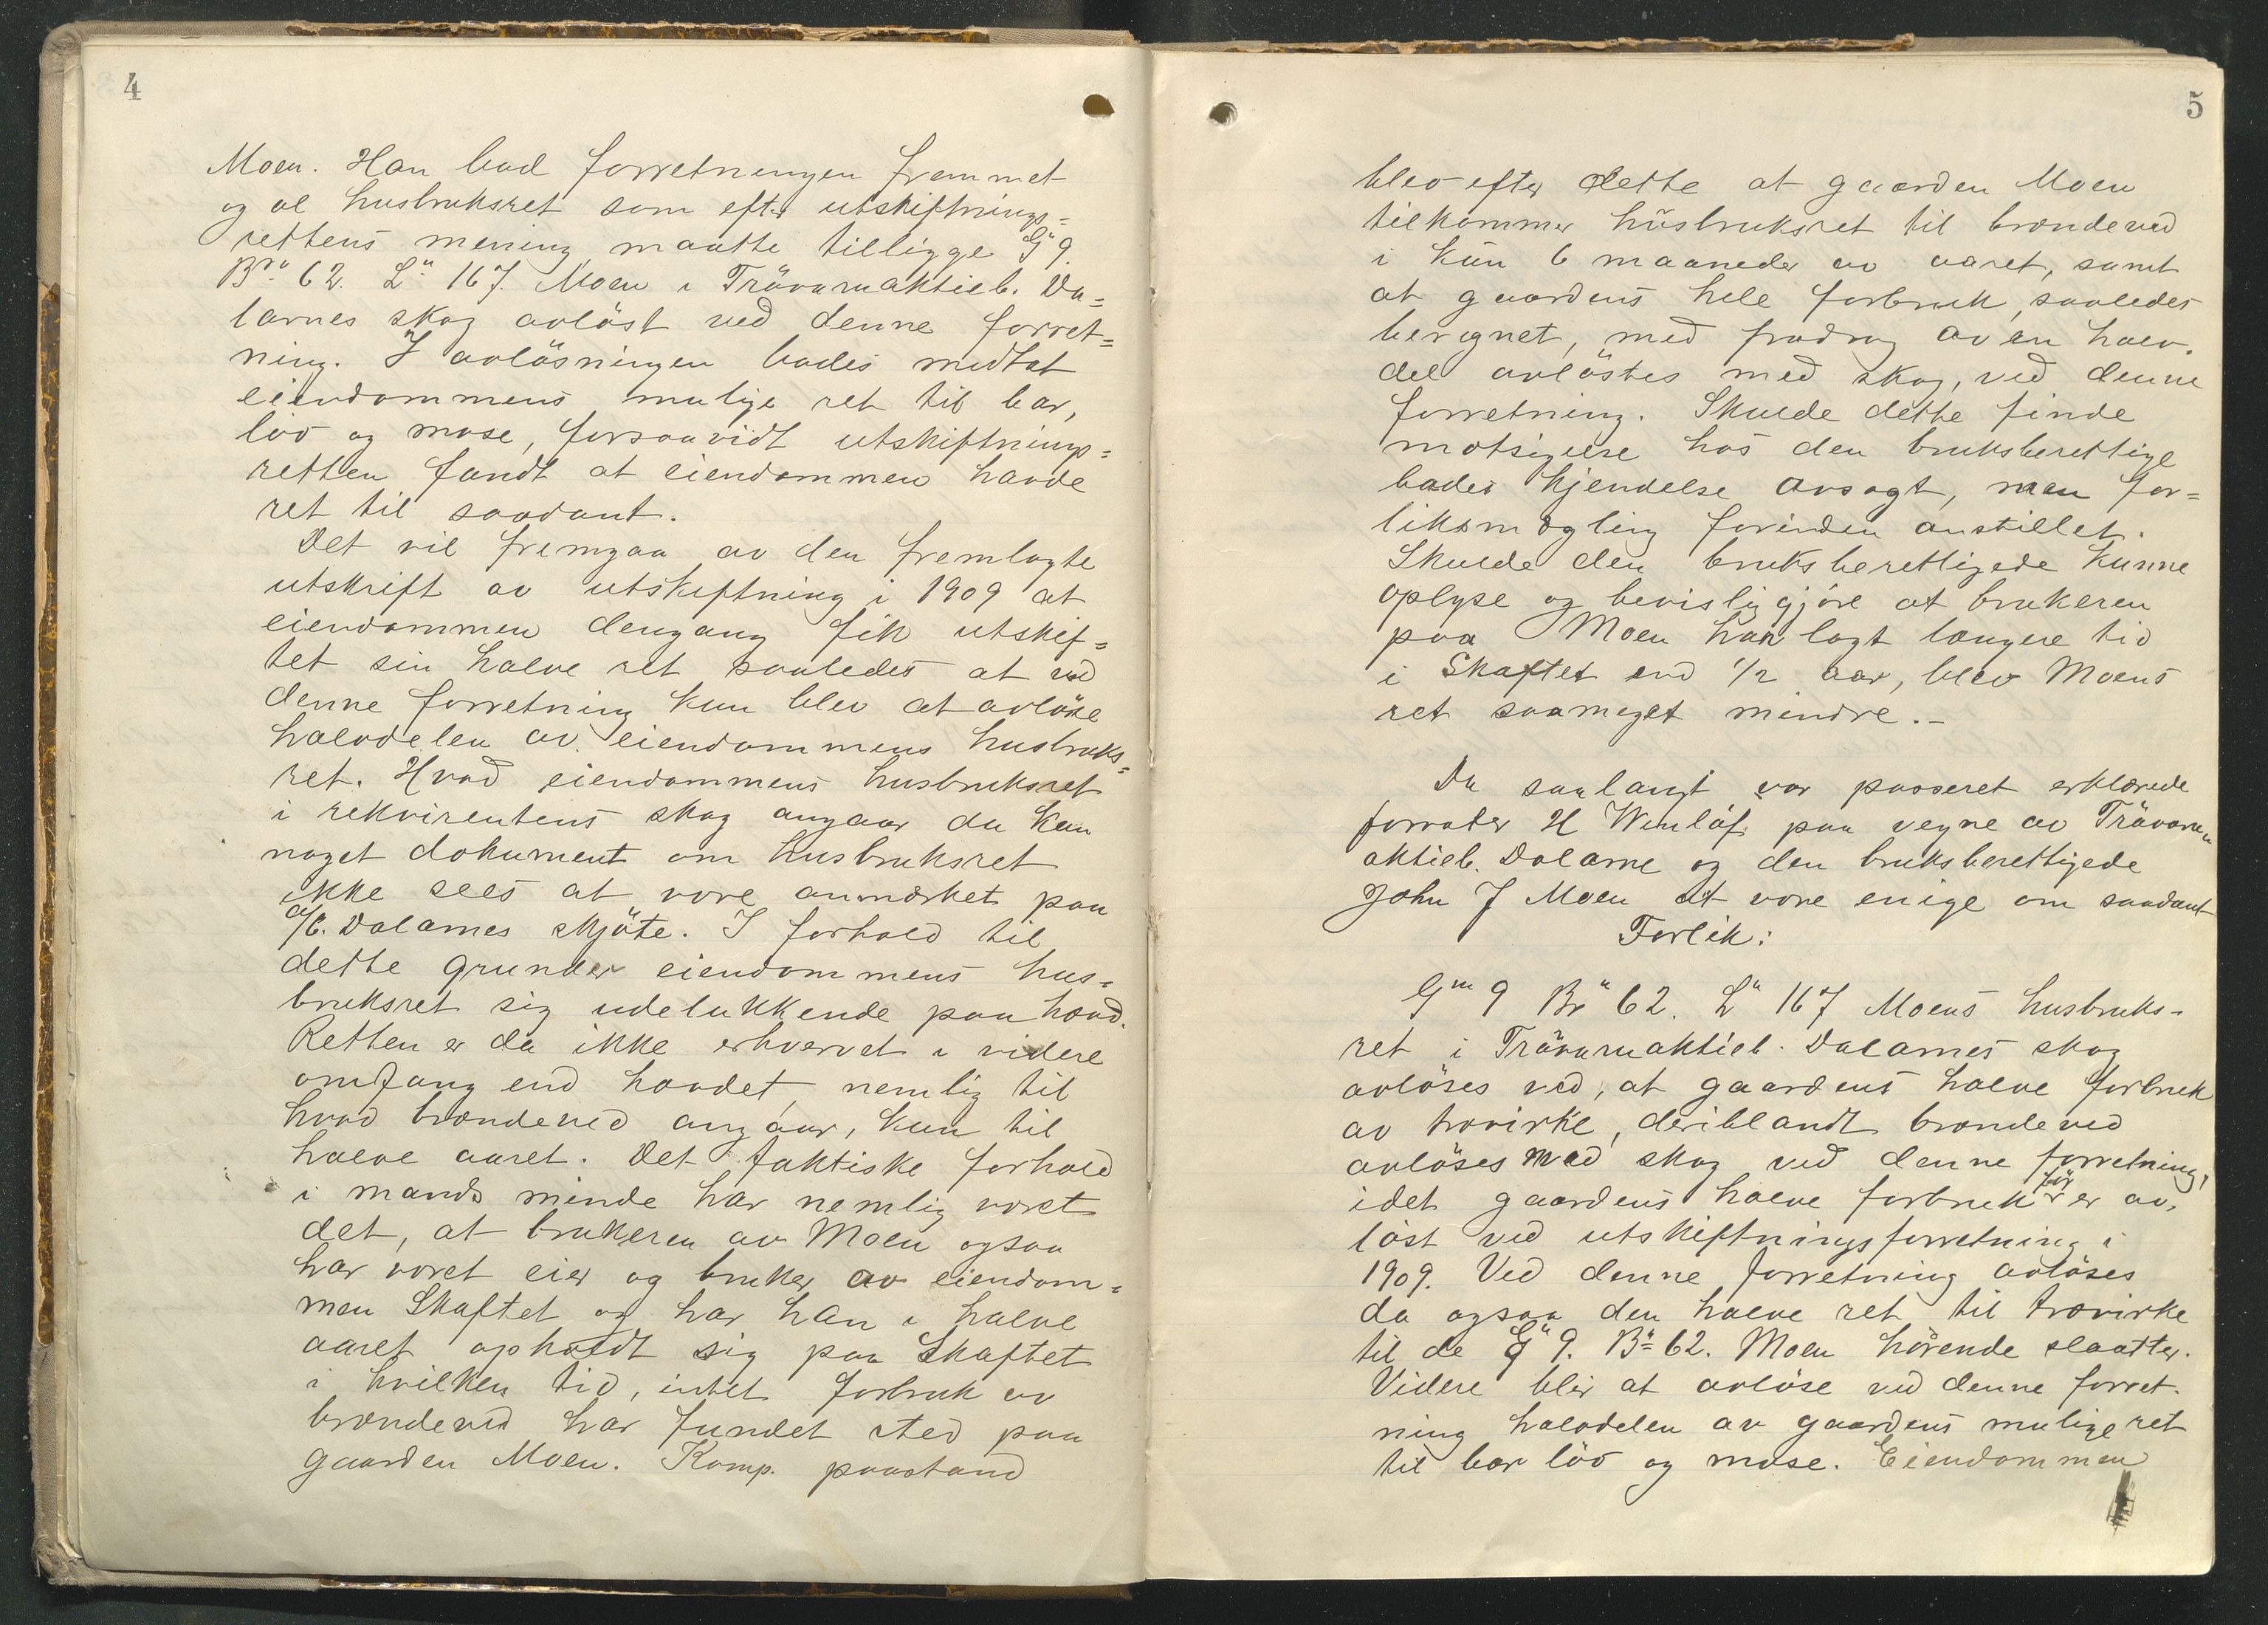 4
Moen. Han bad forretningen fremmet
og al husbruksret som efter utskiftnings=
rettens mening maatte tilligge Gn 9.
Brn 62. Ln 167. Moen i Trävaruaktieb. Da=
larnes skog avlöst ved denne forret=
ning. I avlösningen bades medtat
eiendommens mulige ret til bar,
löv og mose, forsaavidt utskiftnings=
retten fandt at eiendommen havde
ret til saadant.
Det vil fremgaa av den fremlagte
utskrift av utskiftning i 1909 at
eiendommen dengang fik utskif=
tet sin halve ret saaledes at ved
denne forretning kun blev at avlöse
halvdelen av eiendommens husbruks=
ret. Hvad eiendommens husbruksret
i rekvirentens skog angaar da kan
noget dokument om husbruksret
ikke sees at være anmærket paa
a/b. Dalarnes skjöte. I forhold til
dette grunder eiendommens hus=
bruksret sig udelukkende paa hævd.
Retten er da ikke erhvervet i videre
omfang end hævdet, nemlig til
hvad brændeved angaar, kun til
halve aaret. Det faktiske forhold
i mands minde har nemlig været
det, at brukeren av Moen ogsaa
har været eier og bruker av eiendom=
men Skaftet og har han i halve
aaret opholdt sig paa Skaftet
i hvilken tid, intet forbruk av
brændeved har fundet sted paa
gaarden Moen. Komp. paastand
5
blev efter dette at gaarden Moen
tilkommer husbruksret til brændeved
i kun 6 maaneder av aaret, samt
at gaardens hele forbruk, saaledes
beregnet, med fradrag av en halv.
del avlöstes med skog, ved denne
forretning. Skulde dette finde
motsigelse hos den bruksberettige
bades kjendelse avsagt, men for=
liksmægling forinden anstillet.
Skulde den bruksberettigede kunne
oplyse og bevisliggjöre at brukeren
paa Moen har lagt længere tid
i Skaftet end 1/2 aar, blev Moens
ret saameget mindre.-
Da saalangt var passeret erklærede
forvater H Wenlöf. paa vegne av Trävaru
aktieb. Dalarne og den bruksberettigede
John J Moen at være enige om saadant
Forlik:
Gn 9 Brn 62. Ln 167 Moens husbruks-
ret i Trävaruaktieb. Dalarnes skog
avlöses ved, at gaardens halve forbruk
av trævirke, deriblandt brændeved
avlöses med skog ved denne forretning,
idet gaardens halve forbruk för er av.
löst ved utskiftningsforretning i
1909. Ved denne forretning avlöses
da ogsaa den halve ret til trævirke
til de Gn 9. Bn 62. Moen hörende slaatter.
Videre blir at avlöse ved denne forret-
ning halvdelen av gaardens mulige ret
til bar löv og mose. Eiendommen